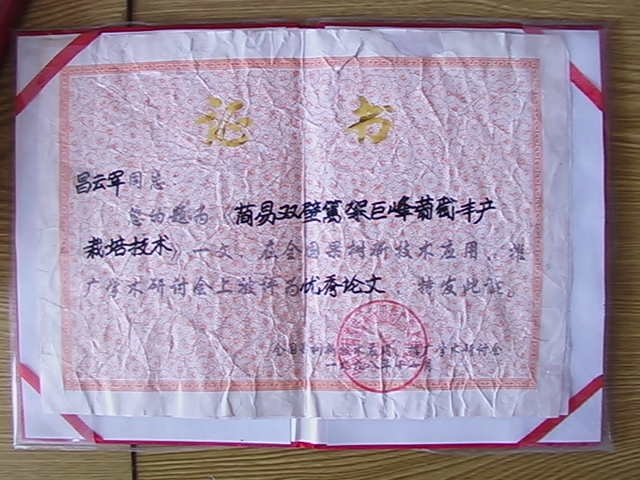 证书
昌云军同志:
您的题为《简易双壁篱架巨峰葡萄丰产
栽培技术》一文,在全国果树新技术应用、推
广学术研讨会上被评为优秀论文,特发此证。
全国果树新技术应用、推广学术研讨会